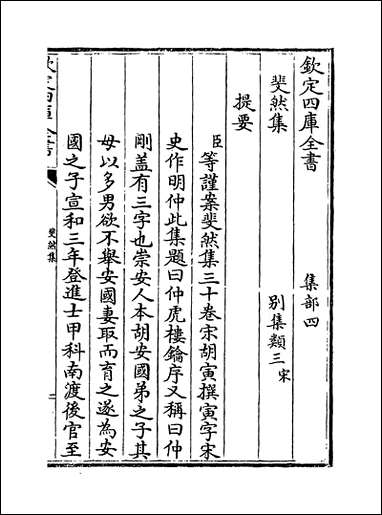 欽定四庫全書　集部四
斐然集　別集類三宋
提要
臣等謹案斐然集三十卷宋胡寅撰寅字宋
史作明仲此集題曰仲虎樓鑰序又稱曰仲
剛盖有三字也崇安人本胡安國弟之子其
母以多男欲不舉安國妻取而育之遂為安
國之子宣和三年登進士甲科南渡後官至
欽定四庫全書
斐然集